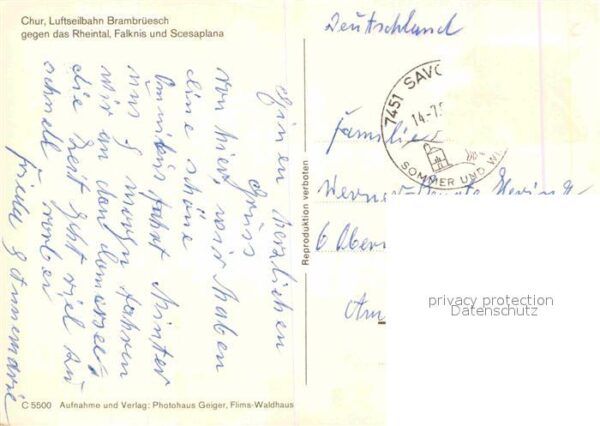 Chur, Luftseilbahn Brambrüesch
gegen das Rheintal, Falknis und Scesaplana
Einen herzlichen
Gruss
von hier, wir haben
eine schöne
Omnibus fahrt hinter
uns morgen fahren
wir an den Comersee
die Zeit geht viel zu
schnell vorbei
Frieda
C 5500 Aufnahme und Verlag: Photohaus Geiger, Flims-Waldhaus
Reproduktion verboten
Deutschland
7451 SAVO
14-7.
SOMMER UND WI
Familie
Werner
6
Am
privacy protection
Datenschutz